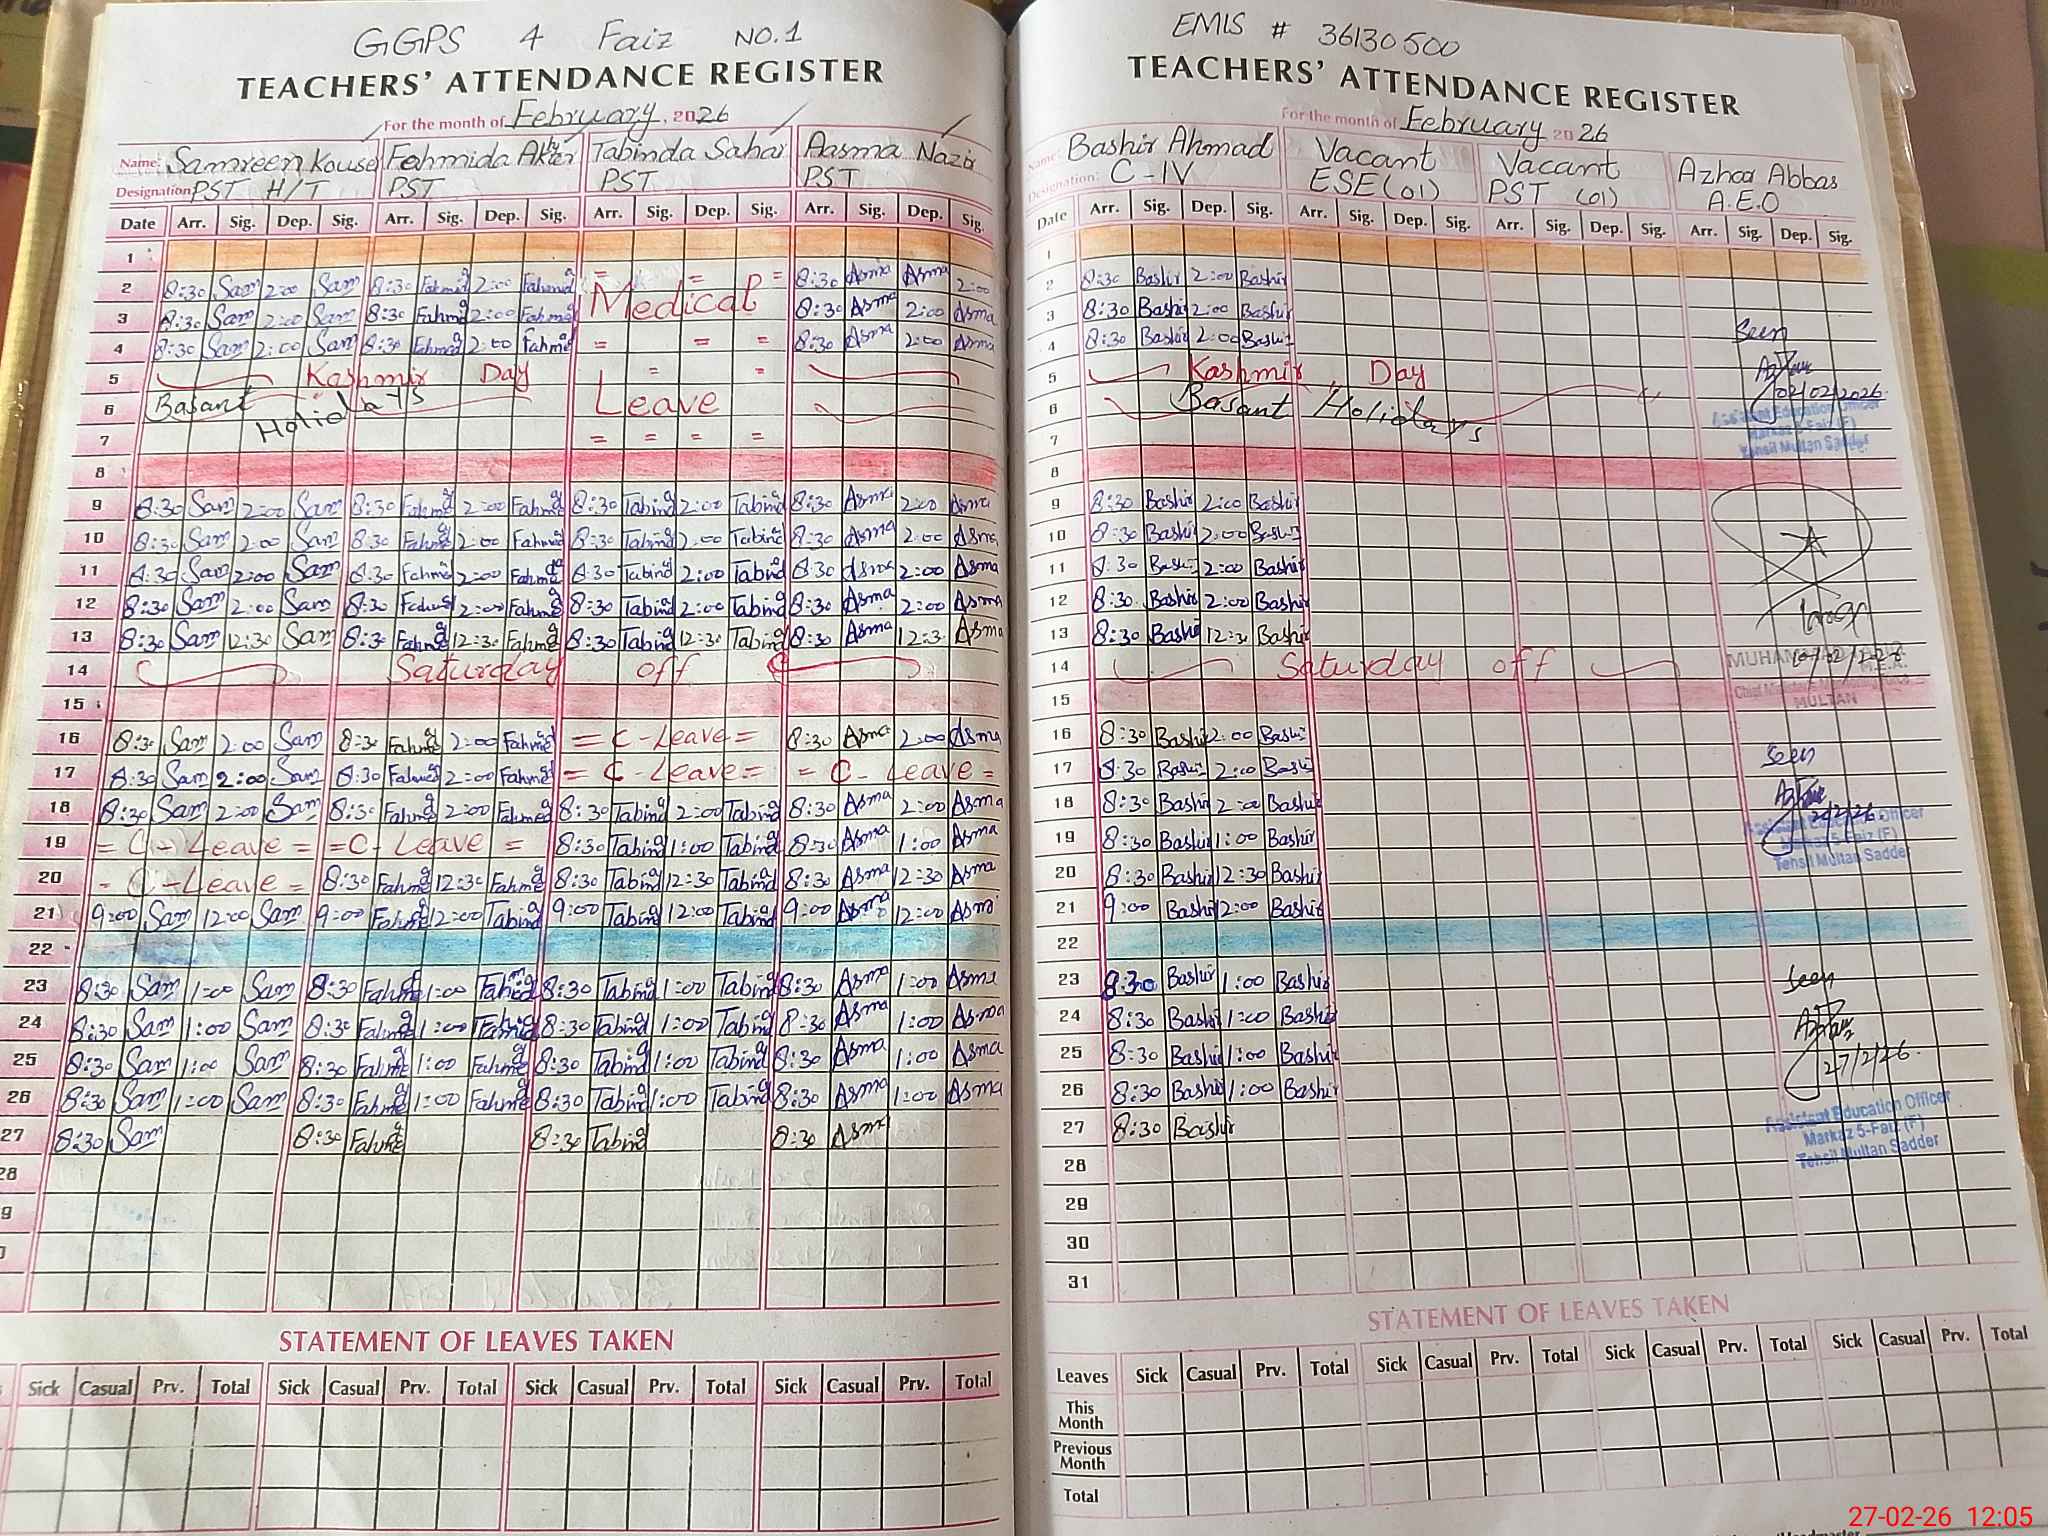 GGPS 4 Faiz NO.1
TEACHERS' ATTENDANCE REGISTER
For the month of February, 2026
Name: Samreen Kouser Fahmida Akhter Tabinda Sahar Aasma Nazir
Designation: PST H/T PST PST PST
Date Arr. Sig. Dep. Sig. Arr. Sig. Dep. Sig. Arr. Sig. Dep. Sig. Arr. Sig. Dep. Sig.
1
2 8:30 Sam 2:00 Sam 8:30 Fahmid 2:00 Fahmid = = = 8:30 Asma Asma 2:00
3 8:30 Sam 2:00 Sam 8:30 Fahmid 2:00 Fahmid Medical 8:30 Asma 2:00 Asma
4 8:30 Sam 2:00 Sam 8:30 Fahmid 2:00 Fahmid = = = 8:30 Asma 2:00 Asma
5 Kashmir Day = =
6 Basant Holidays Leave
7 = = = =
8
9 8:30 Sam 2:00 Sam 8:30 Fahmid 2:00 Fahmid 8:30 Tabind 2:00 Tabind 8:30 Asma 2:00 Asma
10 8:30 Sam 2:00 Sam 8:30 Fahmid 2:00 Fahmid 8:30 Tabind 2:00 Tabind 8:30 Asma 2:00 Asma
11 8:30 Sam 2:00 Sam 8:30 Fahmid 2:00 Fahmid 8:30 Tabind 2:00 Tabind 8:30 Asma 2:00 Asma
12 8:30 Sam 2:00 Sam 8:30 Fahmid 2:00 Fahmid 8:30 Tabind 2:00 Tabind 8:30 Asma 2:00 Asma
13 8:30 Sam 12:30 Sam 8:30 Fahmid 12:30 Fahmid 8:30 Tabind 12:30 Tabind 8:30 Asma 12:3 Asma
14 Saturday off
15
16 8:30 Sam 2:00 Sam 8:30 Fahmid 2:00 Fahmid = C-Leave = 8:30 Asma 2:00 Asma
17 8:30 Sam 2:00 Sam 8:30 Fahmid 2:00 Fahmid = C-Leave = = C-Leave =
18 8:30 Sam 2:00 Sam 8:30 Fahmid 2:00 Fahmid 8:30 Tabind 2:00 Tabind 8:30 Asma 2:00 Asma
19 = C-Leave = = C-Leave = 8:30 Tabind 1:00 Tabind 8:30 Asma 1:00 Asma
20 = C-Leave = 8:30 Fahmid 12:30 Fahmid 8:30 Tabind 12:30 Tabind 8:30 Asma 12:30 Asma
21 9:00 Sam 12:00 Sam 9:00 Fahmid 12:00 Tabind 9:00 Tabind 12:00 Tabind 9:00 Asma 12:00 Asma
22
23 8:30 Sam 1:00 Sam 8:30 Fahmid 1:00 Fahmid 8:30 Tabind 1:00 Tabind 8:30 Asma 1:00 Asma
24 8:30 Sam 1:00 Sam 8:30 Fahmid 1:00 Fahmid 8:30 Tabind 1:00 Tabind 8:30 Asma 1:00 Asma
25 8:30 Sam 1:00 Sam 8:30 Fahmid 1:00 Fahmid 8:30 Tabind 1:00 Tabind 8:30 Asma 1:00 Asma
26 8:30 Sam 1:00 Sam 8:30 Fahmid 1:00 Fahmid 8:30 Tabind 1:00 Tabind 8:30 Asma 1:00 Asma
27 8:30 Sam 8:30 Fahmid 8:30 Tabind 8:30 Asma
28
9
STATEMENT OF LEAVES TAKEN
Sick Casual Prv. Total Sick Casual Prv. Total Sick Casual Prv. Total Sick Casual Prv. Total
EMIS # 36130500
TEACHERS' ATTENDANCE REGISTER
For the month of February 2026
Name: Bashir Ahmad Vacant Vacant Azhar Abbas
Designation: C-IV ESE (01) PST (01) A.E.O
Date Arr. Sig. Dep. Sig. Arr. Sig. Dep. Sig. Arr. Sig. Dep. Sig. Arr. Sig. Dep. Sig.
1
2 8:30 Bashir 2:00 Bashir
3 8:30 Bashir 2:00 Bashir
4 8:30 Bashir 2:00 Bashir Seen
5 Kashmir Day
6 Basant Holidays 02/02/2026
Assistant Education Officer
Markaz 5-Faiz (F)
7
Tehsil Multan Sadder
8
9 8:30 Bashir 2:00 Bashir
10 8:30 Bashir 2:00 Bashir
11 8:30 Bashir 2:00 Bashir
12 8:30 Bashir 2:00 Bashir
13 8:30 Bashir 12:30 Bashir
14 Saturday off
MULTAN
15
16 8:30 Bashir 2:00 Bashir
17 8:30 Bashir 2:00 Bashir Seen
18 8:30 Bashir 2:00 Bashir
Assistant Education Officer
19 8:30 Bashir 1:00 Bashir
Markaz 5-Faiz (F)
Tehsil Multan Sadder
20 8:30 Bashir 12:30 Bashir
21 9:00 Bashir 12:00 Bashir
22
23 8:30 Bashir 1:00 Bashir Seen
24 8:30 Bashir 1:00 Bashir
25 8:30 Bashir 1:00 Bashir 27/2/26
26 8:30 Bashir 1:00 Bashir
Assistant Education Officer
27 8:30 Bashir
Markaz 5-Faiz (F)
Tehsil Multan Sadder
28
29
30
31
STATEMENT OF LEAVES TAKEN
Leaves Sick Casual Prv. Total Sick Casual Prv. Total Sick Casual Prv. Total Sick Casual Prv. Total
This Month
Previous Month
Total
27-02-26 12:05